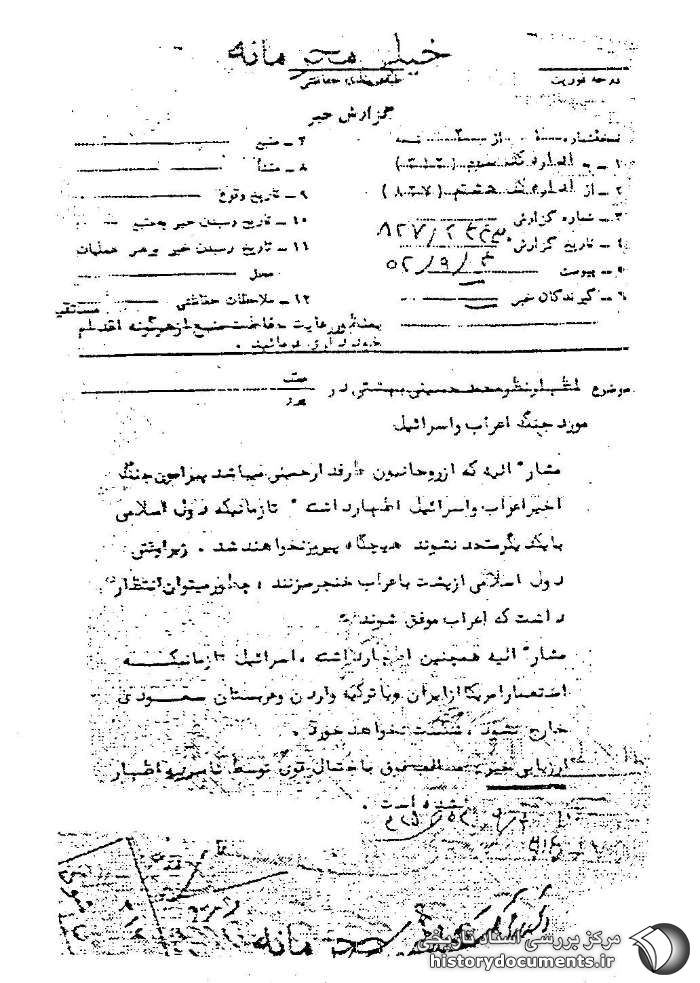 خیلی محرمانه
درجه فوریت
طبقه‌بندی حفاظتی
گزارش خبر
نسخه شماره ۱ از ۲ نسخه
۱ ـ به اداره کل سوم (۳۱۲)
۲ ـ از اداره کل هشتم (۸۲۷)
۳ ـ شماره گزارش ۸۲۷/
۴ ـ تاریخ گزارش ۵۲/۹/۴
۵ ـ پیوست
۶ ـ گیرندگان خبر
۷ ـ منبع
۸ ـ منشأ
۹ ـ تاریخ وقوع
۱۰ ـ تاریخ رسیدن خبر به منبع
۱۱ ـ تاریخ رسیدن خبر به رهبر عملیات
محل
۱۲ ـ ملاحظات حفاظتی
بمنظور رعایت حفاظت منبع از هرگونه اقدام مستقیم
خودداری فرمائید .
موضوع اظهار نظر محمد حسینی بهشتی در
مورد جنگ اعراب و اسرائیل
مشارٌ الیه که از روحانیون طرفدار خمینی میباشد پیرامون جنگ
اخیر اعراب و اسرائیل اظهار داشت " تا زمانیکه دول اسلامی
با یکدیگر متحد نشوند هیچگاه پیروز نخواهند شد . زیرا وقتی
دول اسلامی از پشت با اعراب خنجر میزنند ، چطور میتوان انتظار
داشت که اعراب موفق شوند "
مشارٌ الیه همچنین اظهار داشت ، اسرائیل تا زمانیکه
استعمار امریکا از ایران و یا ترکیه و اردن و عربستان سعودی
خارج نشود ، شکست نخواهد خورد .
ارزیابی خبر ـ مطالب فوق باحتمال قوی توسط نامبرده اظهار
شده است .
خیلی محرمانه
مرکز بررسی اسناد تاریخی
historydocuments.ir